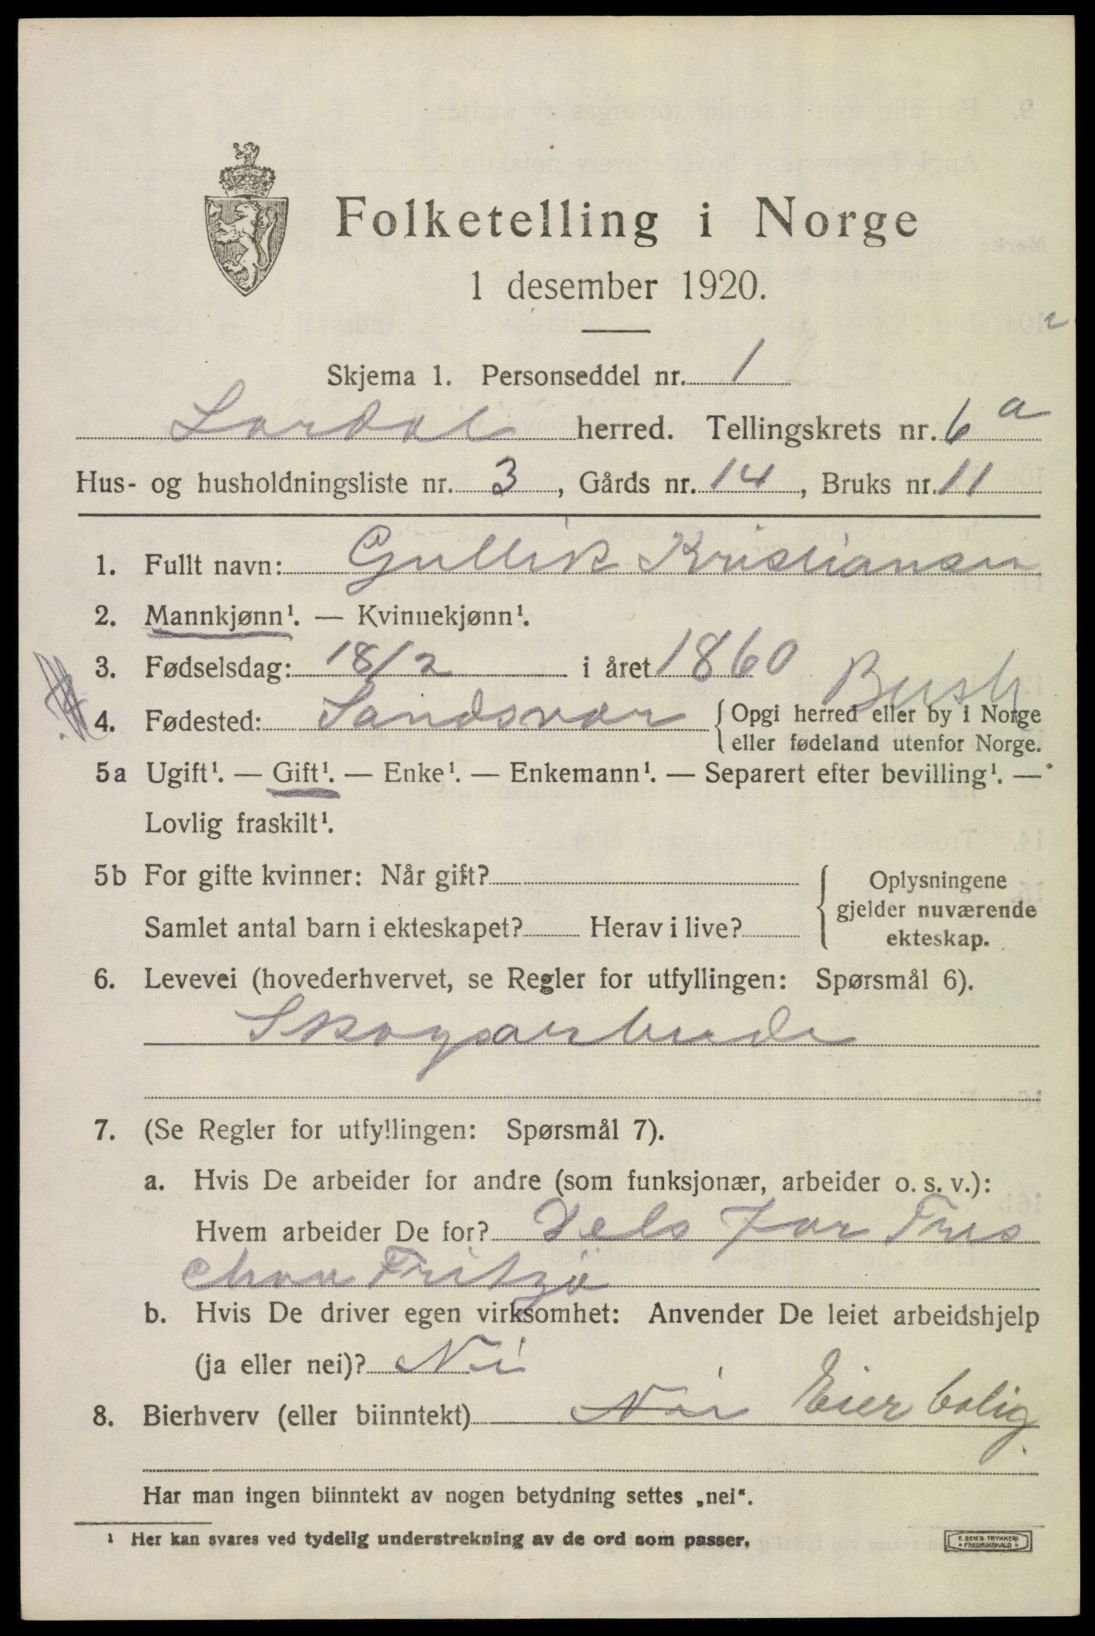 Folketelling i Norge
1 desember 1920.
Skjema 1. Personseddel nr. 1
Lardal herred. Tellingskrets nr. 6 a
Hus- og husholdningsliste nr. 3, Gårds nr. 14, Bruks nr. 11
1. Fullt navn: Gullik Kristiansen
2. Mannkjønn¹. — Kvinnekjønn¹.
3. Fødselsdag: 18/2 i året 1860
Busk
4. Fødested: Sandsvær {Opgi herred eller by i Norge
eller fødeland utenfor Norge.
5a Ugift¹. — Gift¹. — Enke¹. — Enkemann¹. — Separert efter bevilling¹. —
Lovlig fraskilt¹.
5b For gifte kvinner: Når gift?
Samlet antal barn i ekteskapet? Herav i live?
{Oplysningene
gjelder nuværende
ekteskap.
6. Levevei (hovederhvervet, se Regler for utfyllingen: Spørsmål 6).
Skogsarbeide
7. (Se Regler for utfyllingen: Spørsmål 7).
a. Hvis De arbeider for andre (som funksjonær, arbeider o. s. v.):
Hvem arbeider De for? Dels for Tres
chow Fritzø
b. Hvis De driver egen virksomhet: Anvender De leiet arbeidshjelp
(ja eller nei)? Nei
8. Bierhverv (eller biinntekt) Nei Eier bolig
Har man ingen biinntekt av nogen betydning settes „nei“.
¹ Her kan svares ved tydelig understrekning av de ord som passer.
E. SEM'S TRYKKERI
FREDRIKSHALD